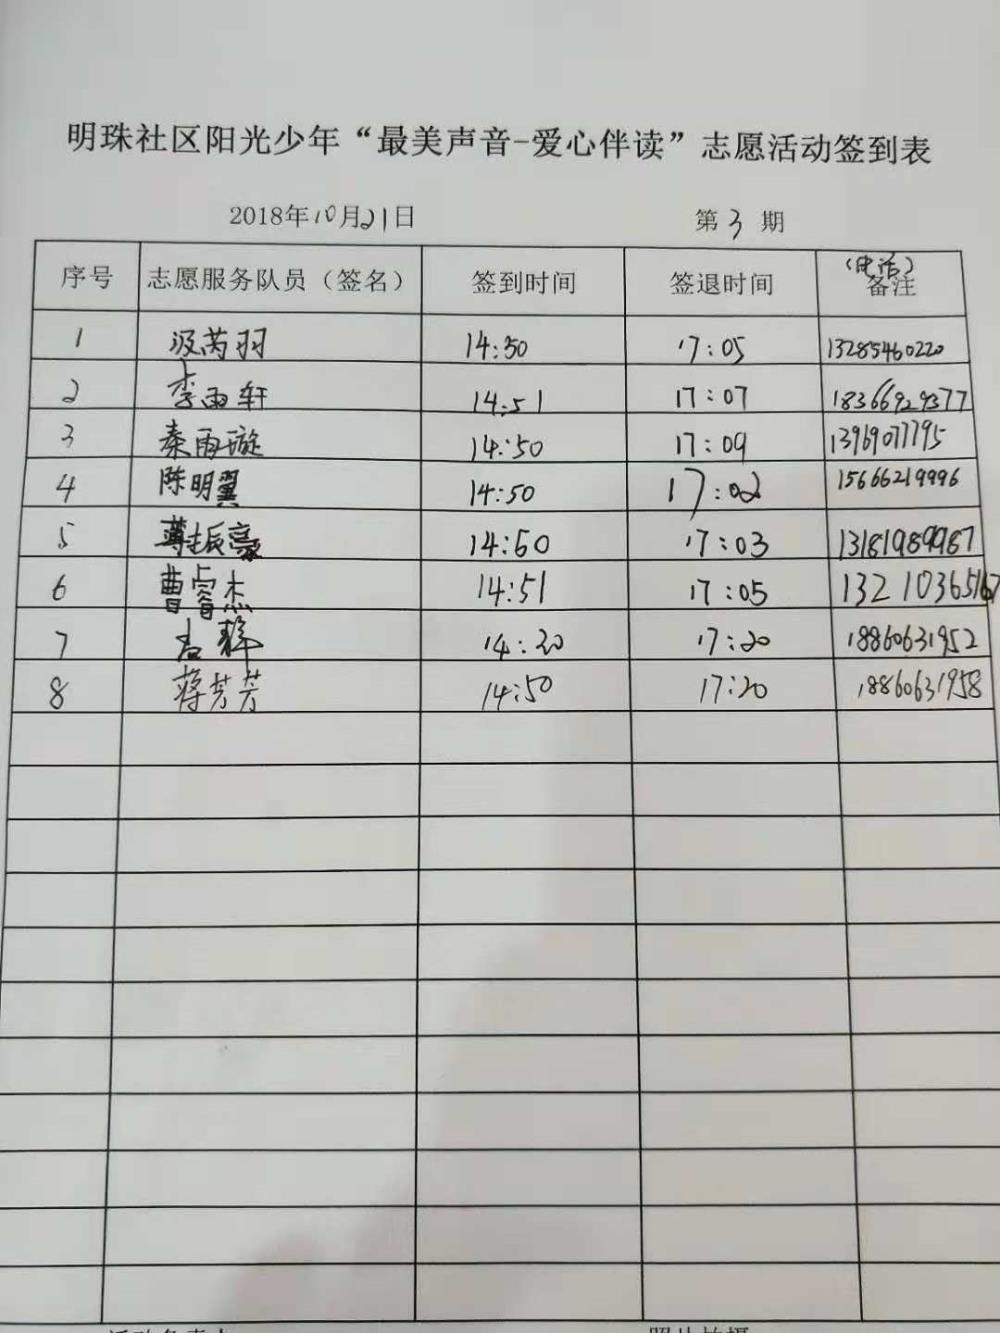 明珠社区阳光少年“最美声音-爱心伴读”志愿活动签到表
2018年10月21日 第3期
序号 志愿服务队员（签名） 签到时间 签退时间 （电话）备注
1 汲芮羽 14:50 17:05 13285460220
2 李雨轩 14:51 17:07 18366929377
3 秦雨璇 14:50 17:09 13969077795
4 陈明翼 14:50 17:02 15666219996
5 薄振豪 14:50 17:03 13181989987
6 曹睿杰 14:51 17:05 13210365167
7 14:20 17:20 18860631952
8 蒋芳芳 14:50 17:20 18860631958